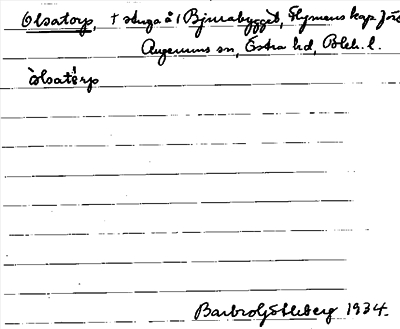 Olsatorp, † stuga å 1 Bjurabygget, Flymens kap. förs.
Augerums sn, Östra hd, Blek. l.
òlsatǫ̀rp
Barbro Götleberg 1934.